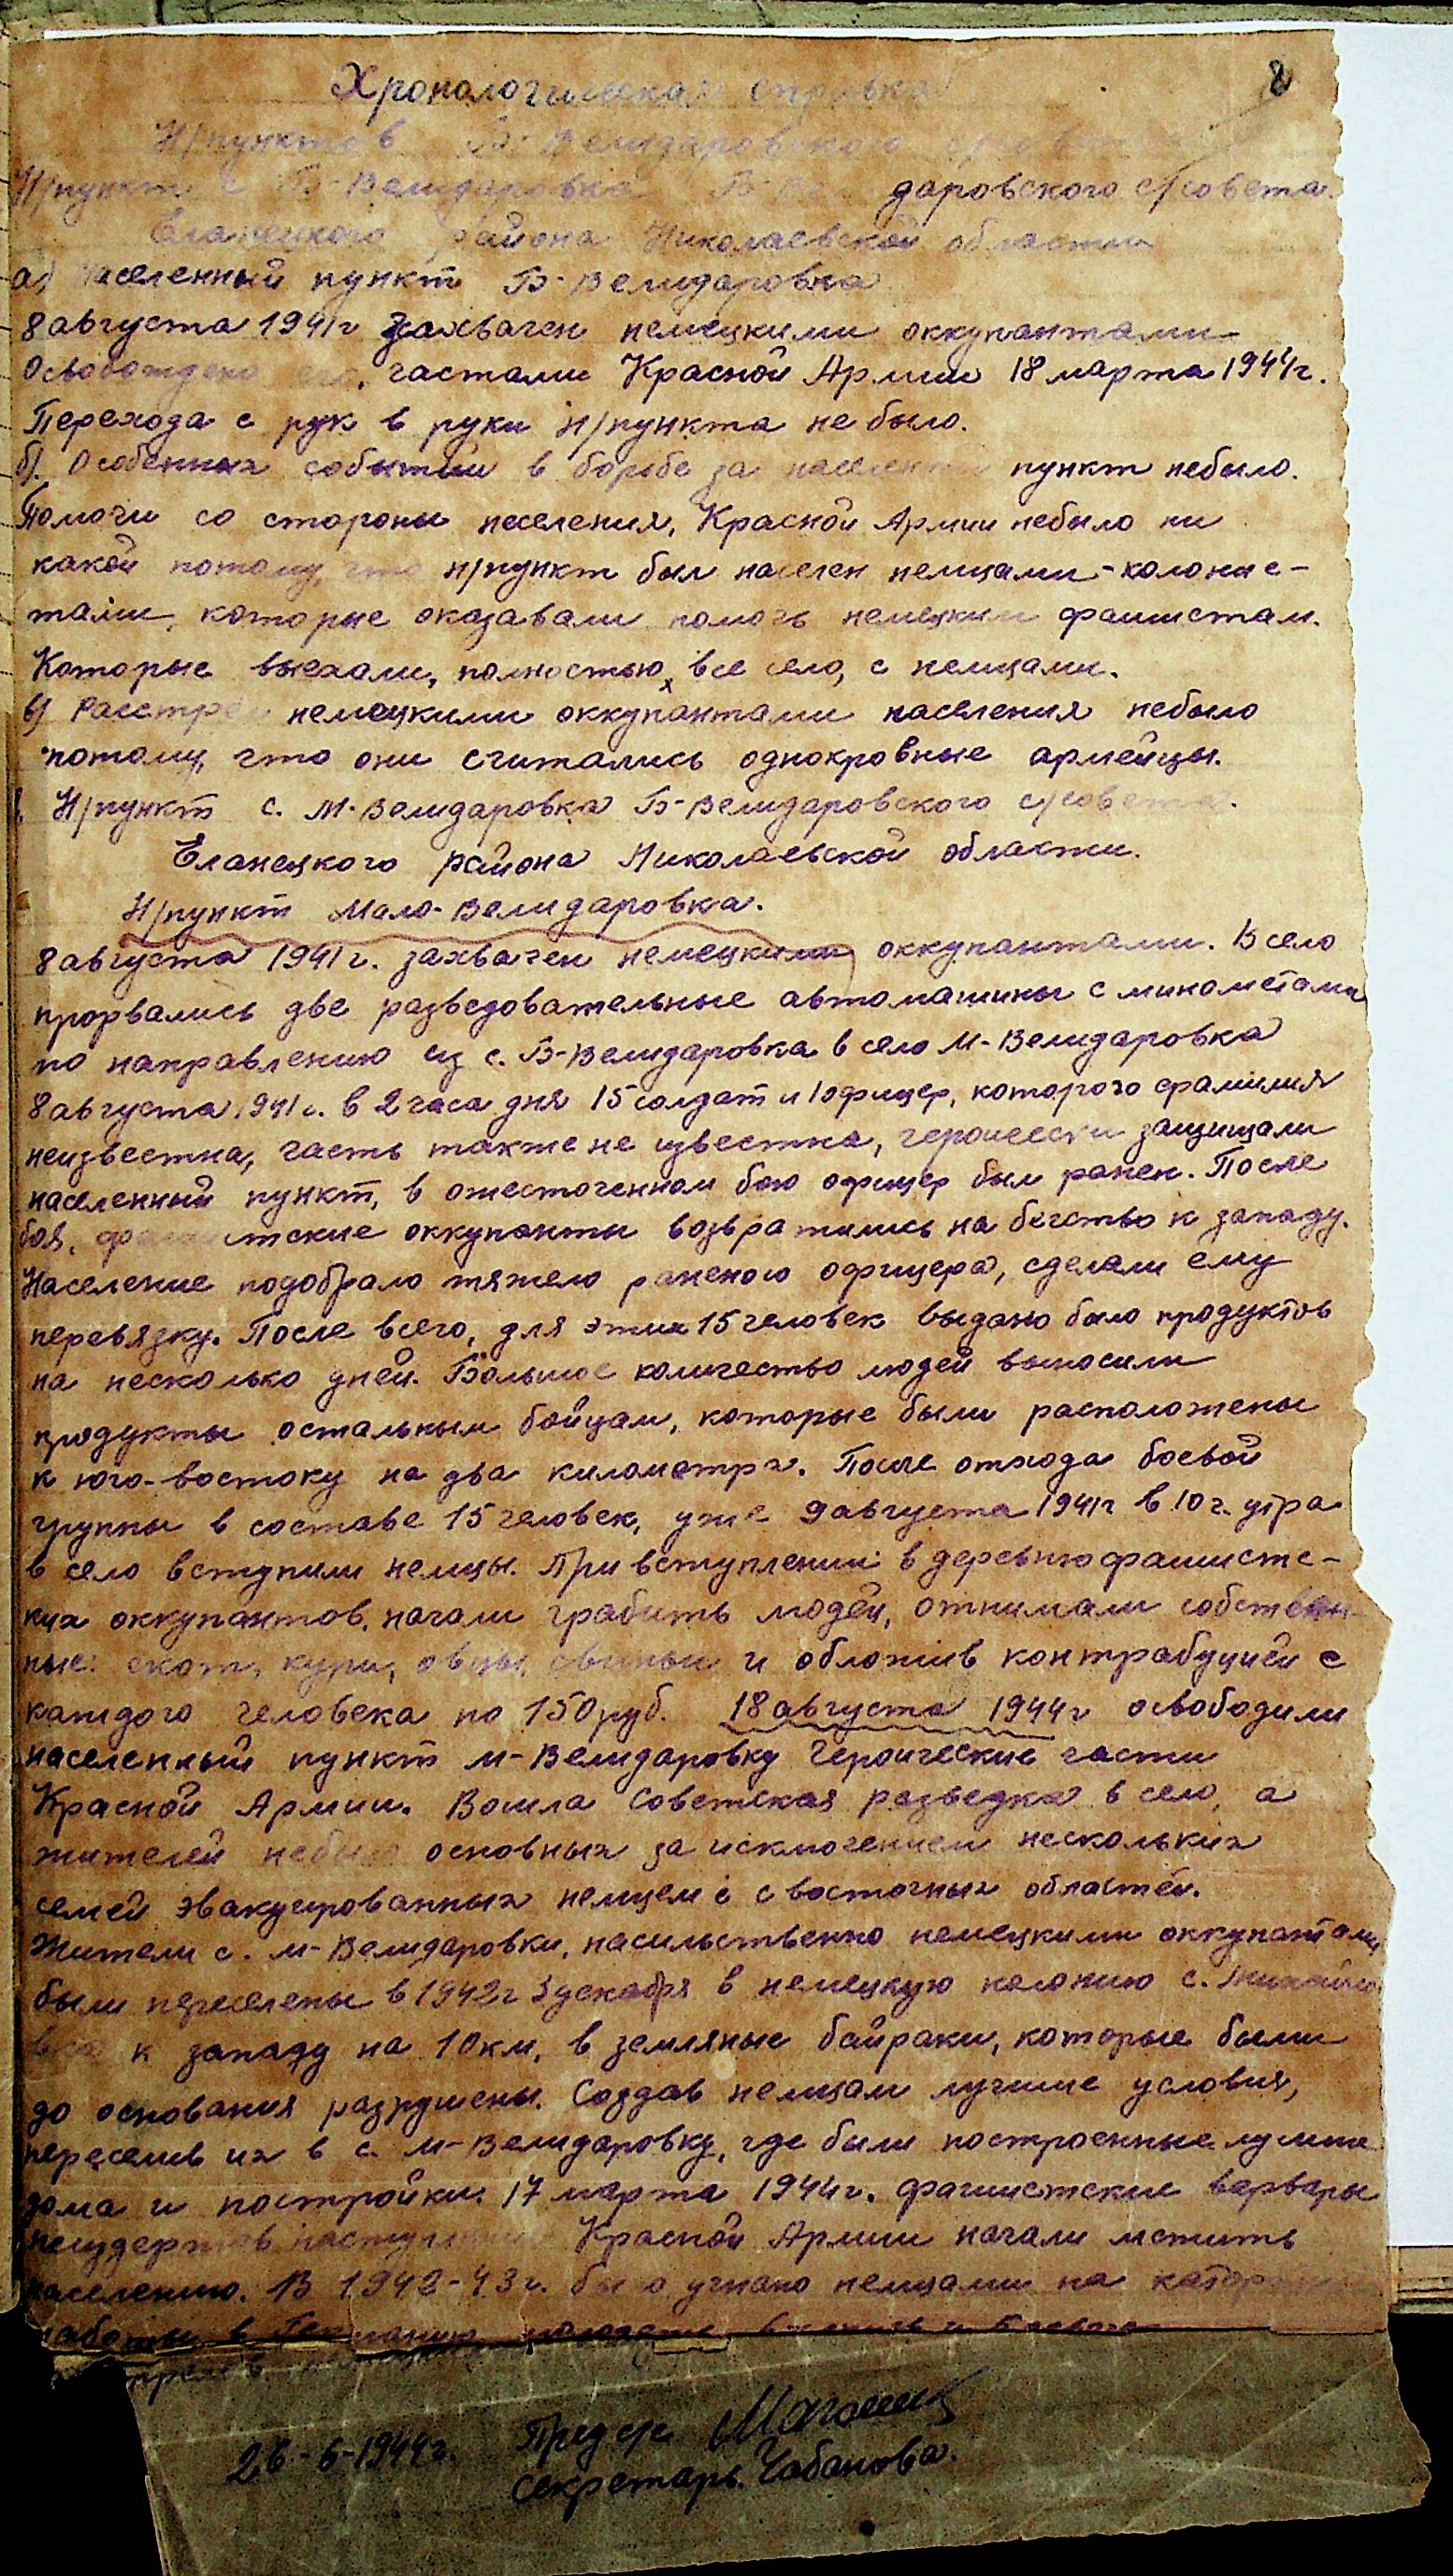 8
Хронологическая справка
Н/пунктов Б-Велидаровского
Н/пункт с Б-Велидаровка даровского с/совета.
Еланецкого района Николаевской области
а) населенный пункт Б-Велидаровка
8 августа 1941г захвачен немецкими оккупантами
Освобождено частами Красной Армии 18 марта 1944г.
Перехода с рук в руки н/пункта не было.
б). Особенных событий в борьбе за населенный пункт небыло.
Помочи со стороны неселения, Красной Армии небыло ни
какой потому, что н/пункт был населен немцами-колонис-
тами, которые оказавали помочь немецким фашистам.
Которые выехали, полностью, все село, с немцами.
в) Расстрел немецкими оккупантами населения небыло
потому, что они считались однокровные армейцы.
Н/пункт с. М-Велидаровка Б-Велидаровского с/совета.
Еланецкого района Николаевской области.
Н/пункт Мало-Велидаровка.
8 августа 1941г. захвачен немецкими оккупантами. В село
прорвались две разведовательные автомашины с минометами
по направлению из с. Б-Велидаровка в село М-Велидаровка
8 августа 1941г. в 2 часа дня 15 солдат и 1 офицер, которого фамилия
неизвестна, часть также не известна, героически защищали
населенный пункт, в ожесточенном бою офицер был ранен. После
боя, фашистские оккупанты возвратились на бегство к западу.
Население подобрало тяжело раненого офицера, сделали ему
перевязку. После всего, для этих 15 человек выдано было продуктов
на несколько дней. Большое количество людей выносили
продукты остальным бойцам, которые были расположены
к юго-востоку на два километра. После отхода боевой
группы в составе 15 человек, уже 9 августа 1941г в 10 ч. утра
в село вступили немцы. При вступлении в деревню фашистс-
ких оккупантов, начали грабить людей, отнимали собствен-
ные: скот, куры, овцы, свиньи и обложив контрабуцией с
каждого человека по 150 руб. 18 августа 1944г освободили
населенный пункт М-Велидаровку героические части
Красной Армии. Вошла Советская разведка в село, а
жителей небыло основных за исключением нескольких
семей эвакуированных немцем с восточных областей.
Жители с. М-Велидаровки, насильственно немецкими оккупантами
были переселены в 1942г 3 декабря в немецкую колонию с. Михайло
вка к западу на 10 км, в земляные байраки, которые были
до основания разрушены. Создав немцам лучшие условия,
переселив их в с. М-Велидаровку, где были построенные лучшие
дома и постройки. 17 марта 1944г. фашистские варвары
неудержав наступление Красной Армии начали мстить
населению. В 1942-43 г. было угнано немцами на каторжные
работы в Германию
26-6-1944г. Предс/с
секретарь Чабанова.